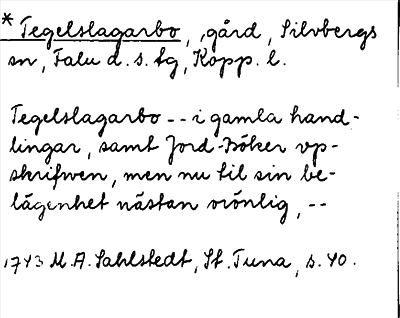 * Tegelslagarbo, gård, Silvbergs
sn, Falu d. s. fg, Kopp. l.
Tegelslagarbo -- i gamla hand-
lingar, samt Jord-Böker up-
skrifwen, men nu til sin be-
lägenhet nästan orönlig, --
1743 M. A. Sahlstedt, St. Tuna, s. 40.